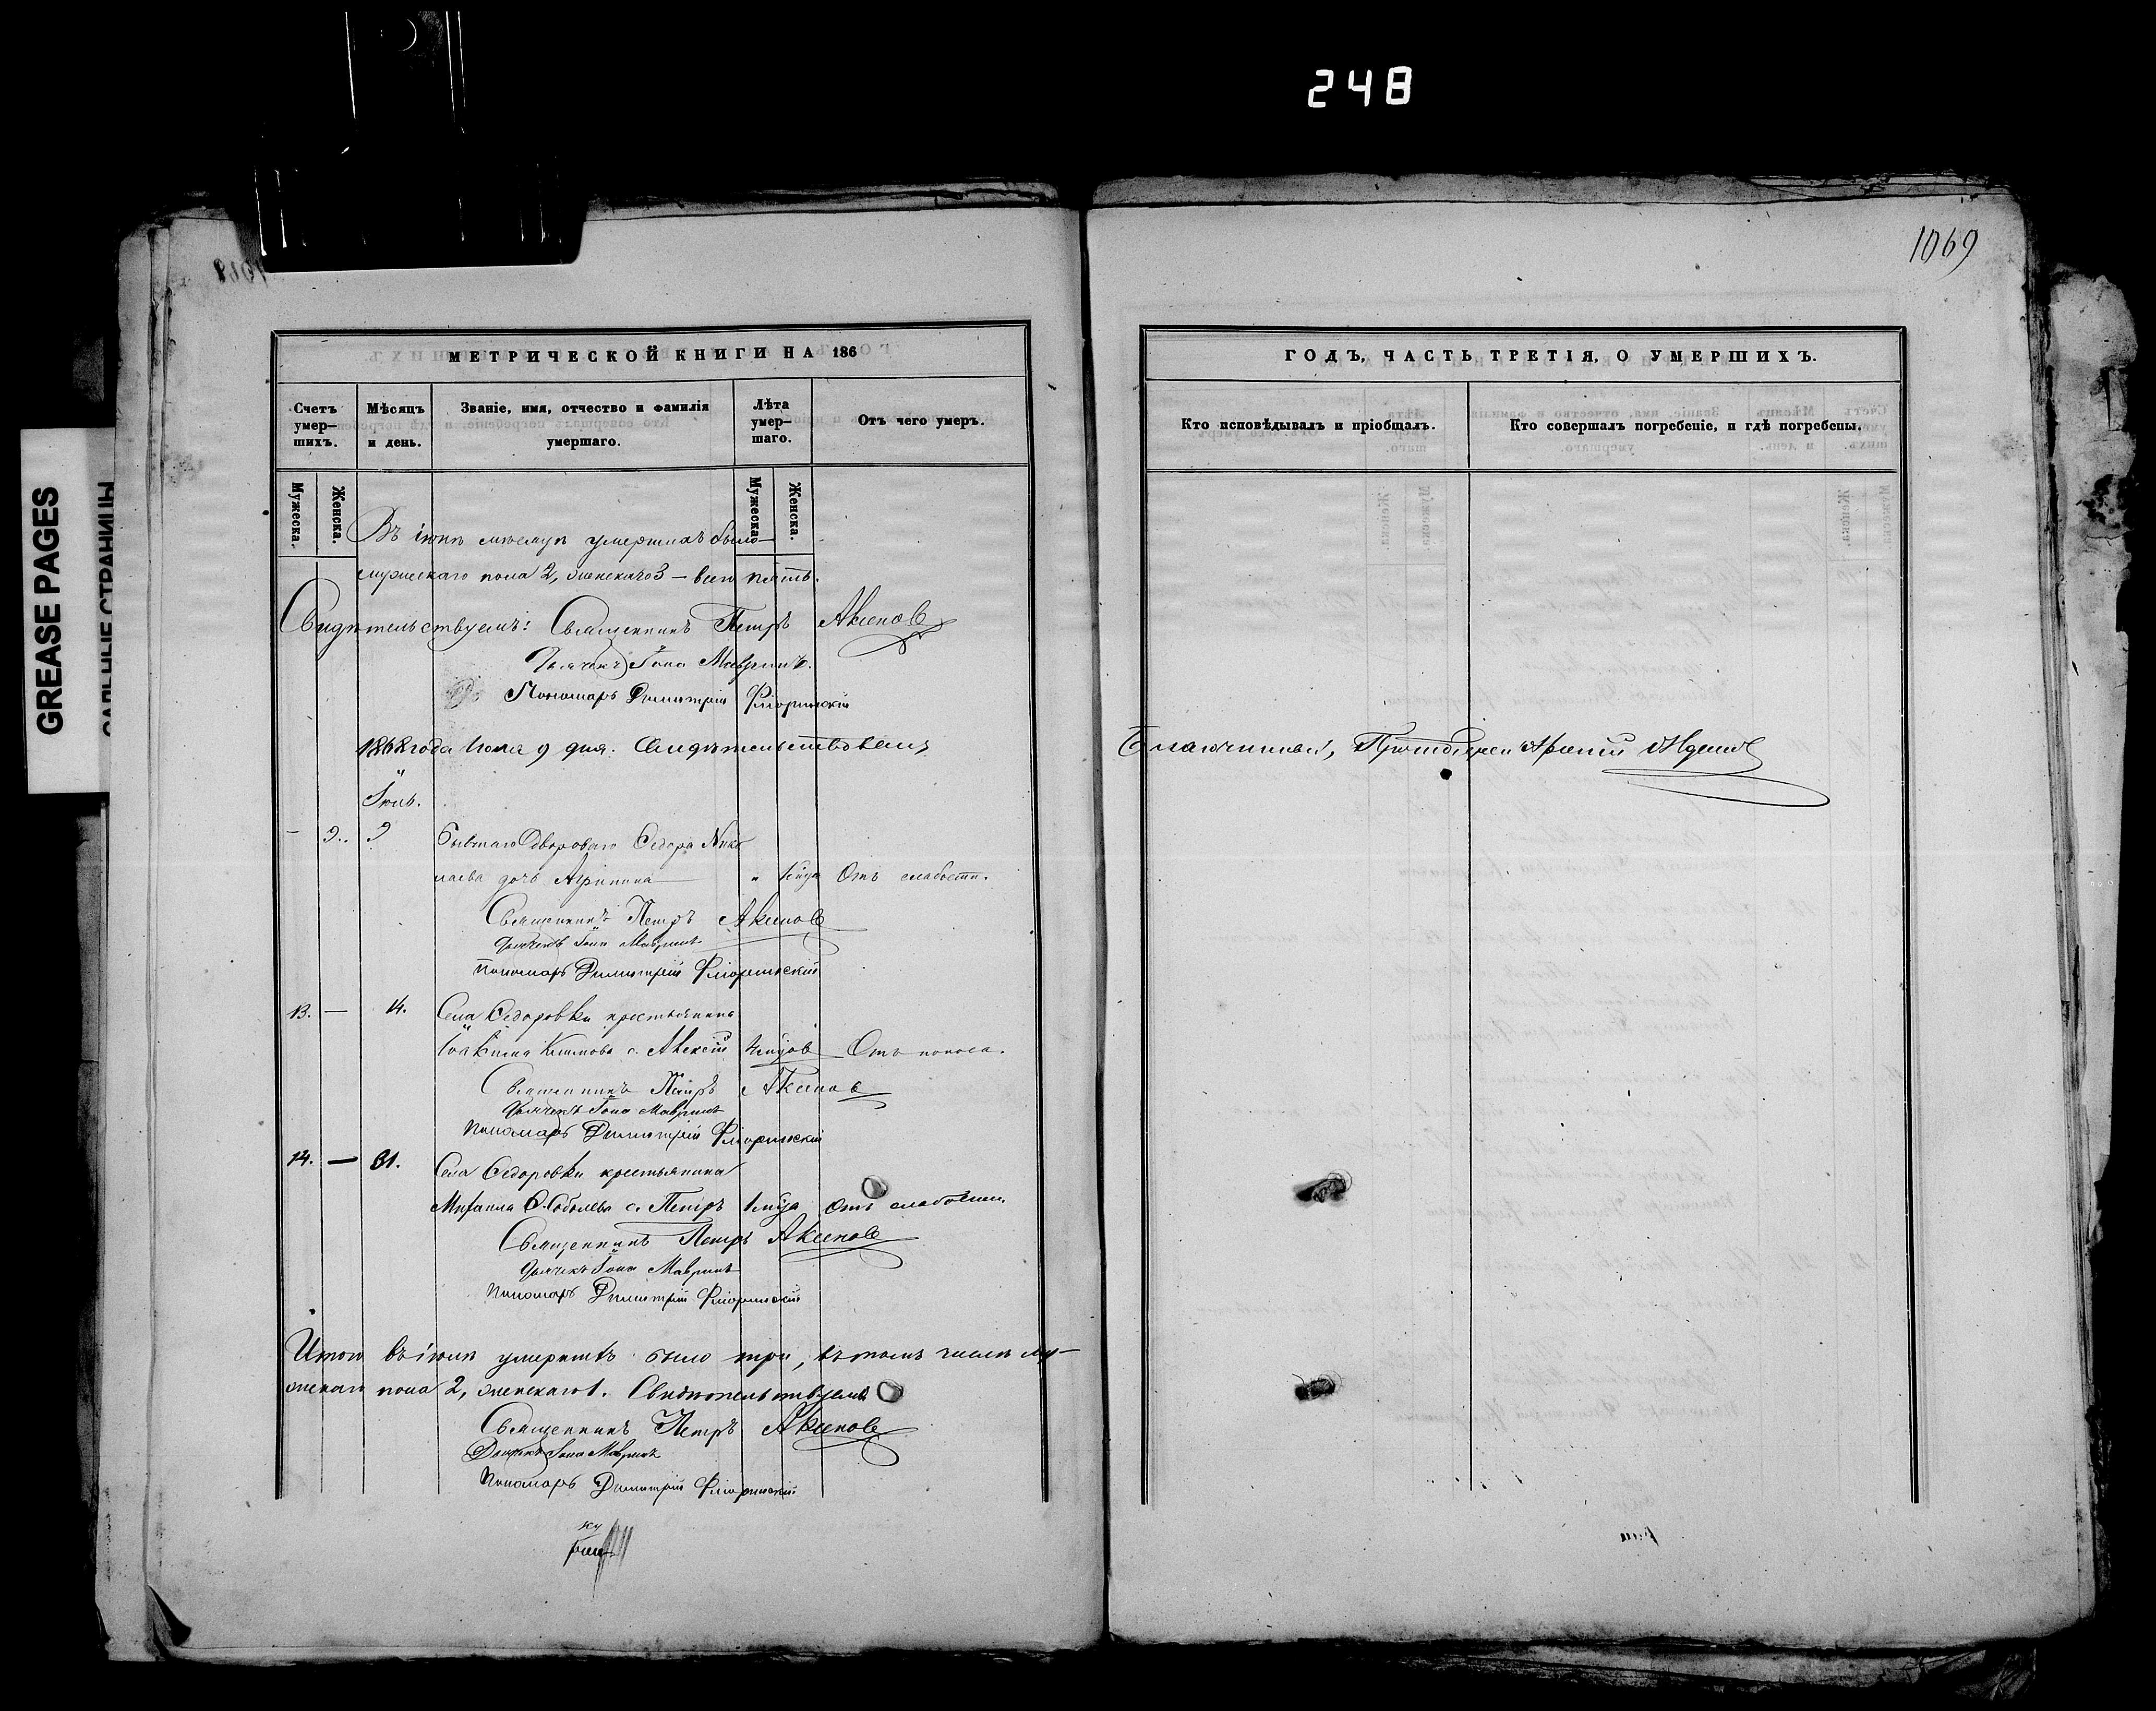 248
1069
GREASE PAGES
САЛЬНЫЕ СТРАНИЦЫ
МЕТРИЧЕСКОЙ КНИГИ НА 186
Счетъ умер-шихъ.
Мѣсяцъ и день.
Званіе, имя, отчество и фамилія умершаго.
Лѣта умер-шаго.
Отъ чего умеръ.
Мужеска.
Женска.
Мужеска
Женска.
Въ іюнѣ мѣсяцѣ умершихъ было
мужескаго пола 2, женскаго 3 — всего пять.
Свидѣтельствуемъ: Священникъ Петръ Аксеновъ
Дьячекъ Іона Мавринъ.
Пономарь Димитрій Фліоринскій
1868 года Іюля 9 дня. Свидѣтельствовалъ
Іюль.
— 9. 9 Бывшаго Дворового Ѳедора Нико
лаева дочь Агрипина " 1 года Отъ слабости.
Священникъ Петръ Аксеновъ
Дьячекъ Іона Мавринъ
Пономарь Димитрій Фліоринскій
13. — 14. Села Ѳедоровки крестьянина
Іоакима Климова с. Алексій Отъ поноса.
Священникъ Петръ Аксеновъ
Дьячекъ Іона Мавринъ
Пономарь Димитрій Фліоринскій
14. — 31. Села Ѳедоровки крестьянина
Михаила Ѳ. Соболева с. Петръ 1 года отъ слабости.
Священникъ Петръ Аксеновъ
Дьячекъ Іона Мавринъ
Пономарь Димитрій Фліоринскій
Итого въ іюлѣ умершихъ было три, въ томъ числѣ му-
жескаго пола 2, женскаго 1. Свидѣтельствуемъ
Священникъ Петръ Аксеновъ
Дьячекъ Іона Мавринъ
Пономарь Димитрій Фліоринскій
ГОДЪ, ЧАСТЬ ТРЕТІЯ, О УМЕРШИХЪ.
Кто исповѣдывалъ и пріобщалъ.
Кто совершалъ погребеніе, и гдѣ погребены.
Благочинный, Протоіерей Арсеній